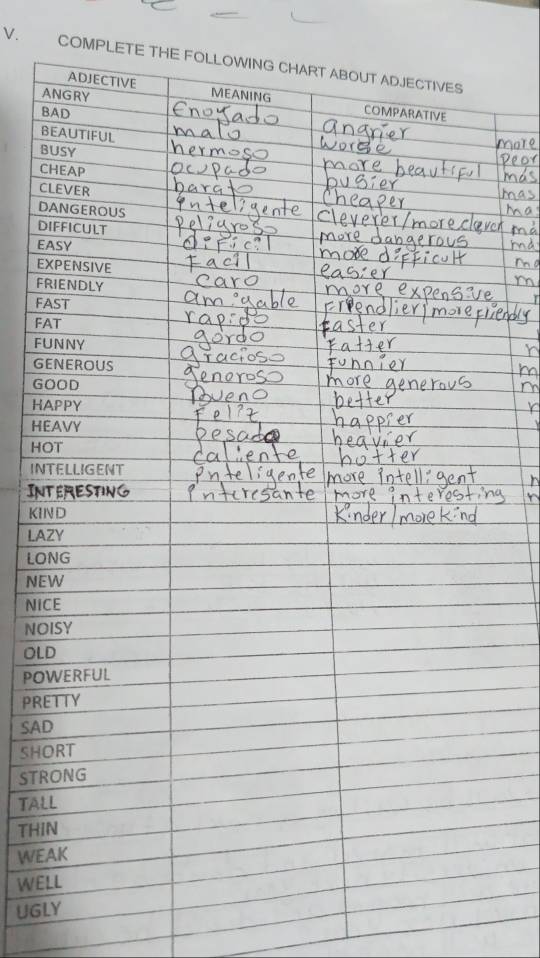 V. COMPLETE THE FOLLOWING CHART ABOUT ADJECTIVES
ADJECTIVE MEANING COMPARATIVE
ANGRY Enojado angrier more
BAD malo worse peor
BEAUTIFUL hermoso more beautiful más
BUSY ocupado busier mas
CHEAP barato cheaper ma
CLEVER inteligente cleverer/more clever má
DANGEROUS peligroso more dangerous má
DIFFICULT difícil more difficult ma
EASY Facil easier m
EXPENSIVE caro more expensive
FRIENDLY amigable Friendlier/more friendly
FAST rapido faster
FAT gordo Fatter
FUNNY gracioso Funnier m
GENEROUS generoso more generous m
GOOD Bueno better
HAPPY Feliz happier
HEAVY pesado heavier
HOT caliente hotter
INTELLIGENT inteligente more intelligent
INTERESTING interesante more interesting
KIND Kinder/more kind
LAZY
LONG
NEW
NICE
NOISY
OLD
POWERFUL
PRETTY
SAD
SHORT
STRONG
TALL
THIN
WEAK
WELL
UGLY